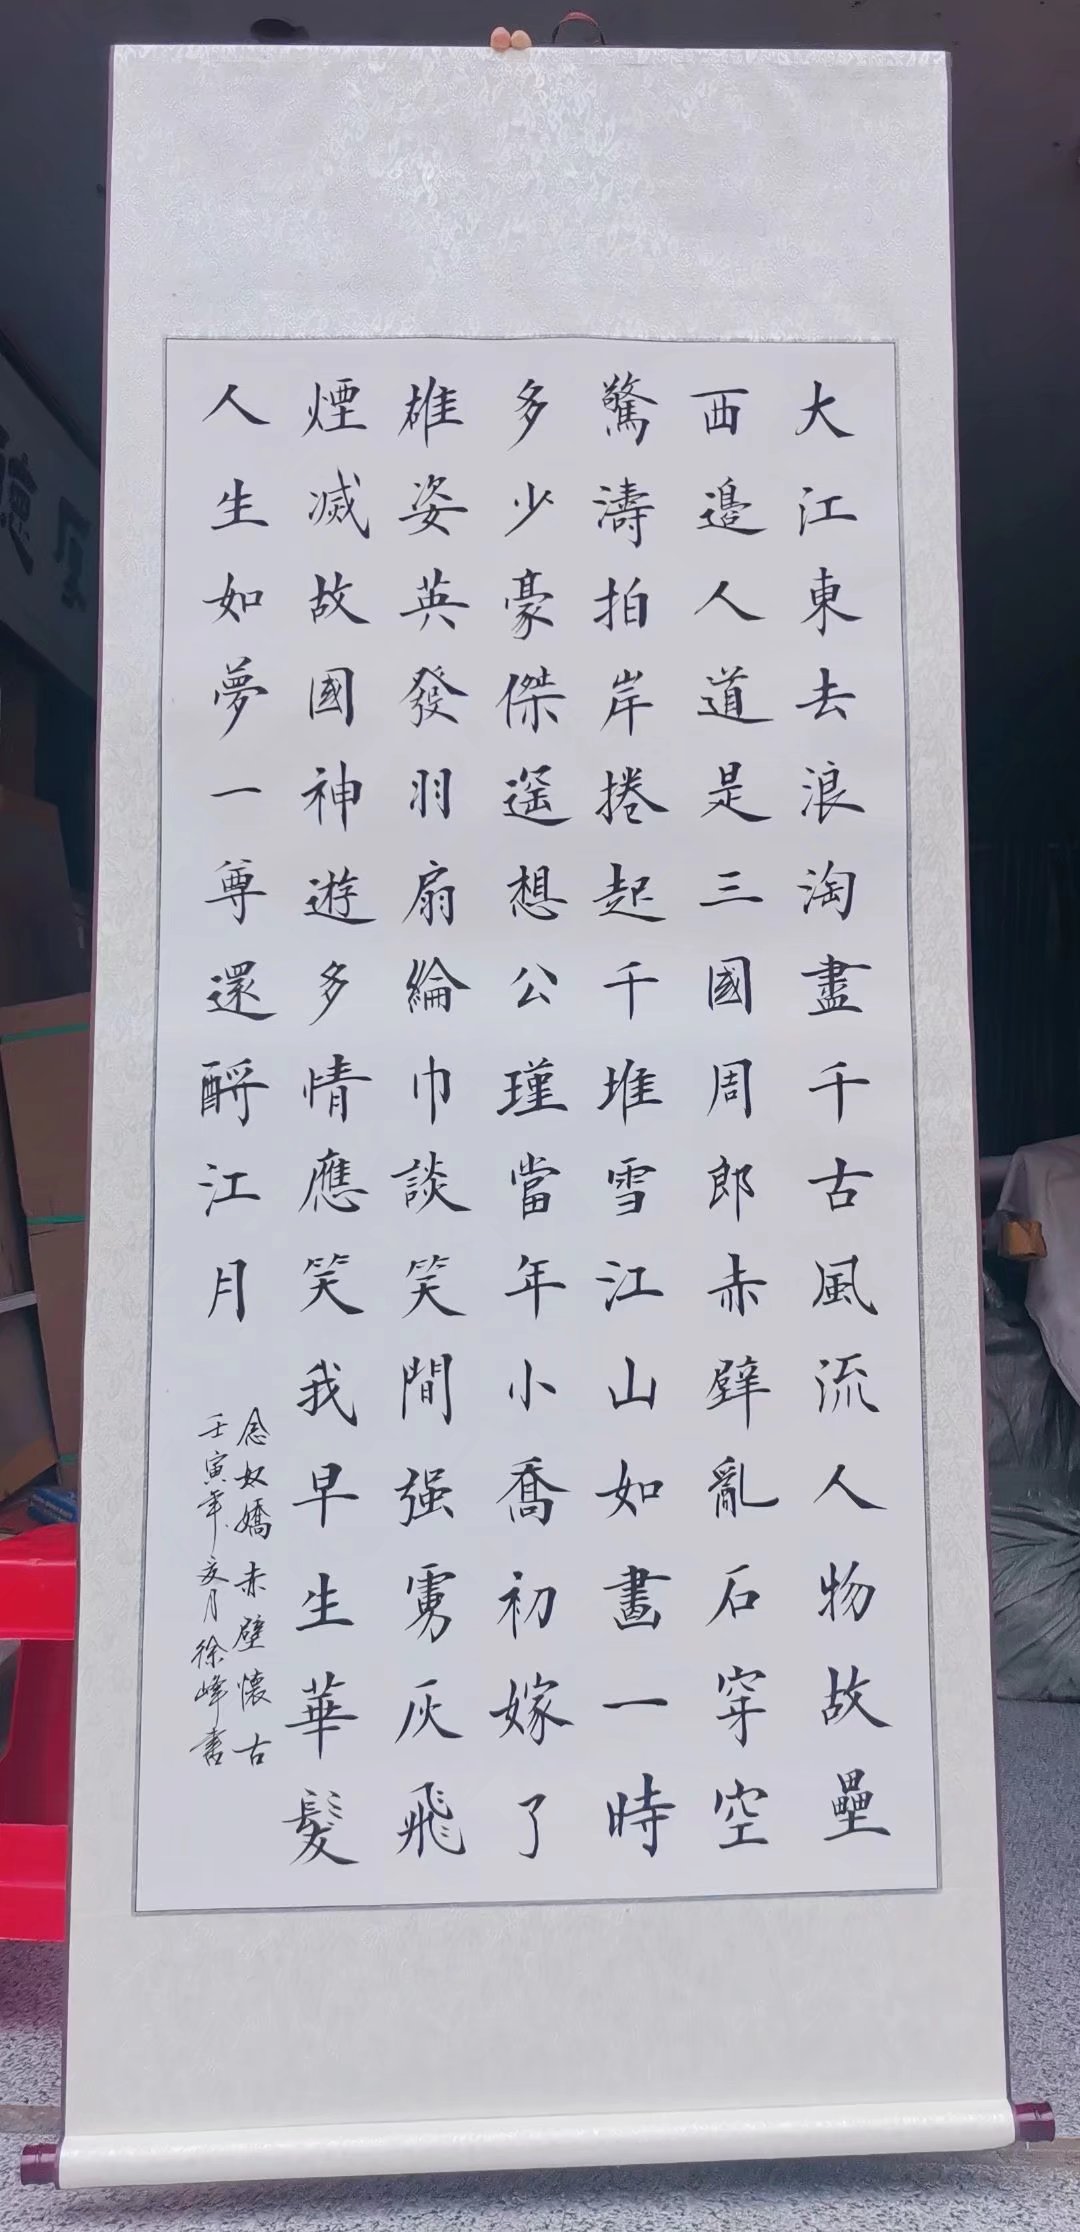 大江東去浪淘盡千古風流人物故壘
西邊人道是三國周郎赤壁亂石穿空
驚濤拍岸捲起千堆雪江山如畫一時
多少豪傑遙想公瑾當年小喬初嫁了
雄姿英發羽扇綸巾談笑間强虜灰飛
煙滅故國神遊多情應笑我早生華髮
人生如夢一尊還酹江月
念奴嬌赤壁懷古
壬寅年月徐峰書